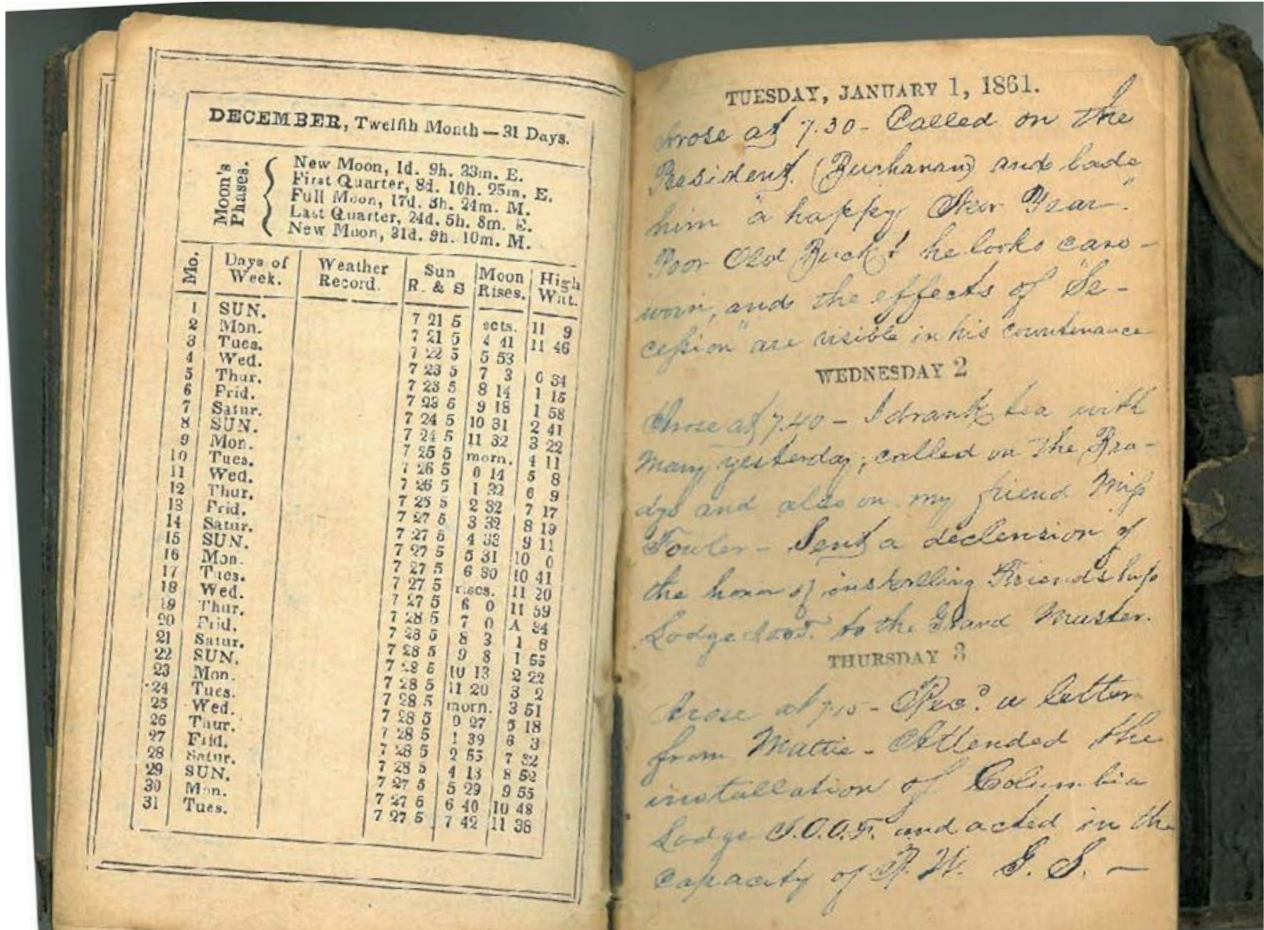 DECEMBER, Twelfth Month — 31 Days.
Moon's Phases.
New Moon, 1d. 9h. 33m. E.
First Quarter, 8d. 10h. 25m. E.
Full Moon, 17d. 3h. 24m. M.
Last Quarter, 24d. 5h. 8m. E.
New Moon, 31d. 9h. 10m. M.
Mo. Days of Week. Weather Record. Sun R. & S Moon Rises. High Wat.
1 SUN. 7 21 5 sets. 11 9
2 Mon. 7 21 5 4 41 11 46
3 Tues. 7 22 5 5 53
4 Wed. 7 23 5 7 3 0 34
5 Thur. 7 23 5 8 14 1 15
6 Frid. 7 23 5 9 18 1 58
7 Satur. 7 24 5 10 31 2 41
8 SUN. 7 24 5 11 32 3 22
9 Mon. 7 25 5 morn. 4 11
10 Tues. 7 26 5 0 14 5 8
11 Wed. 7 26 5 1 32 6 9
12 Thur. 7 26 5 2 32 7 17
13 Frid. 7 27 5 3 32 8 19
14 Satur. 7 27 5 4 33 9 11
15 SUN. 7 27 5 5 31 10 0
16 Mon. 7 27 5 6 30 10 41
17 Tues. 7 27 5 rises. 11 20
18 Wed. 7 27 5 6 0 11 59
19 Thur. 7 28 5 7 0 A 34
20 Frid. 7 28 5 8 3 1 8
21 Satur. 7 28 5 9 8 1 55
22 SUN. 7 28 5 10 13 2 22
23 Mon. 7 28 5 11 20 3 2
24 Tues. 7 28 5 morn. 3 51
25 Wed. 7 28 5 0 27 5 18
26 Thur. 7 28 5 1 39 6 3
27 Frid. 7 28 5 2 55 7 32
28 Satur. 7 28 5 4 13 8 52
29 SUN. 7 27 5 5 29 9 55
30 Mon. 7 27 5 6 40 10 48
31 Tues. 7 27 5 7 42 11 38
TUESDAY, JANUARY 1, 1861.
Arose at 7.30 - Called on the
President. (Buchanan) and bade
him "a happy New Year."
Poor Old Buck! he looks care-
worn, and the effects of "Se-
cession" are visible in his countenance
WEDNESDAY 2
Arose at 7.40 - I drank tea with
Mary yesterday; called on the Bra-
dys and also on my friend Miss
Fowler - Sent a declension of
the honor of installing Friendship
Lodge to the Grand Master.
THURSDAY 3
Arose at 7.15 - Recd. a letter
from Mattie - Attended the
installation of Columbia
Lodge I.O.O.F. and acted in the
capacity of R. W. G. S. -